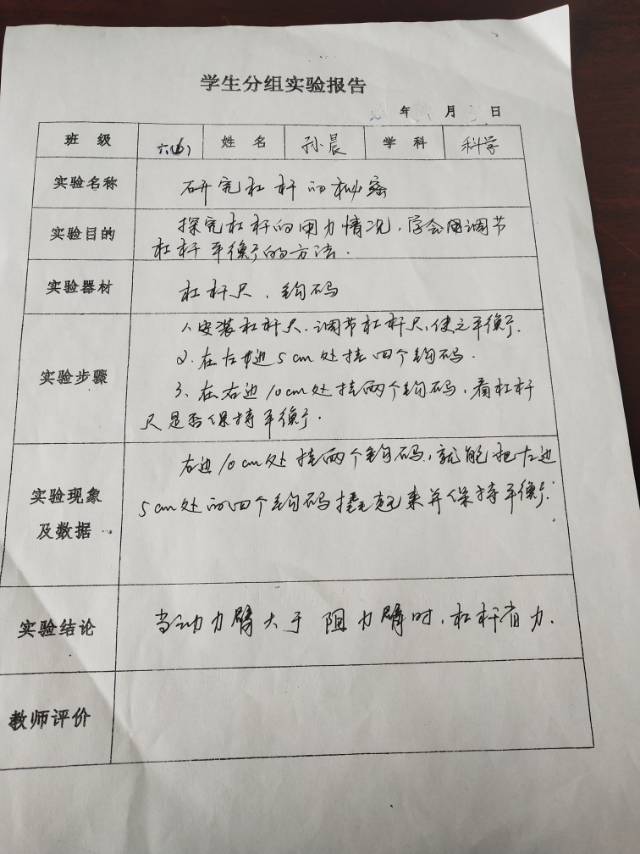 学生分组实验报告
年 月 日
班 级 六(6) 姓 名 孙晨 学 科 科学
实验名称 研究杠杆的秘密
实验目的 探究杠杆的用力情况,学会用调节
杠杆平衡的方法.
实验器材 杠杆尺、钩码
实验步骤 1、安装杠杆尺.调节杠杆尺,使之平衡.
2、在左边5cm处挂四个钩码.
3、在右边10cm处挂两个钩码,看杠杆
尺是否保持平衡.
实验现象及数据 右边10cm处挂两个钩码,就能把左边
5cm处的四个钩码撬起来并保持平衡.
实验结论 当动力臂大于阻力臂时,杠杆省力.
教师评价